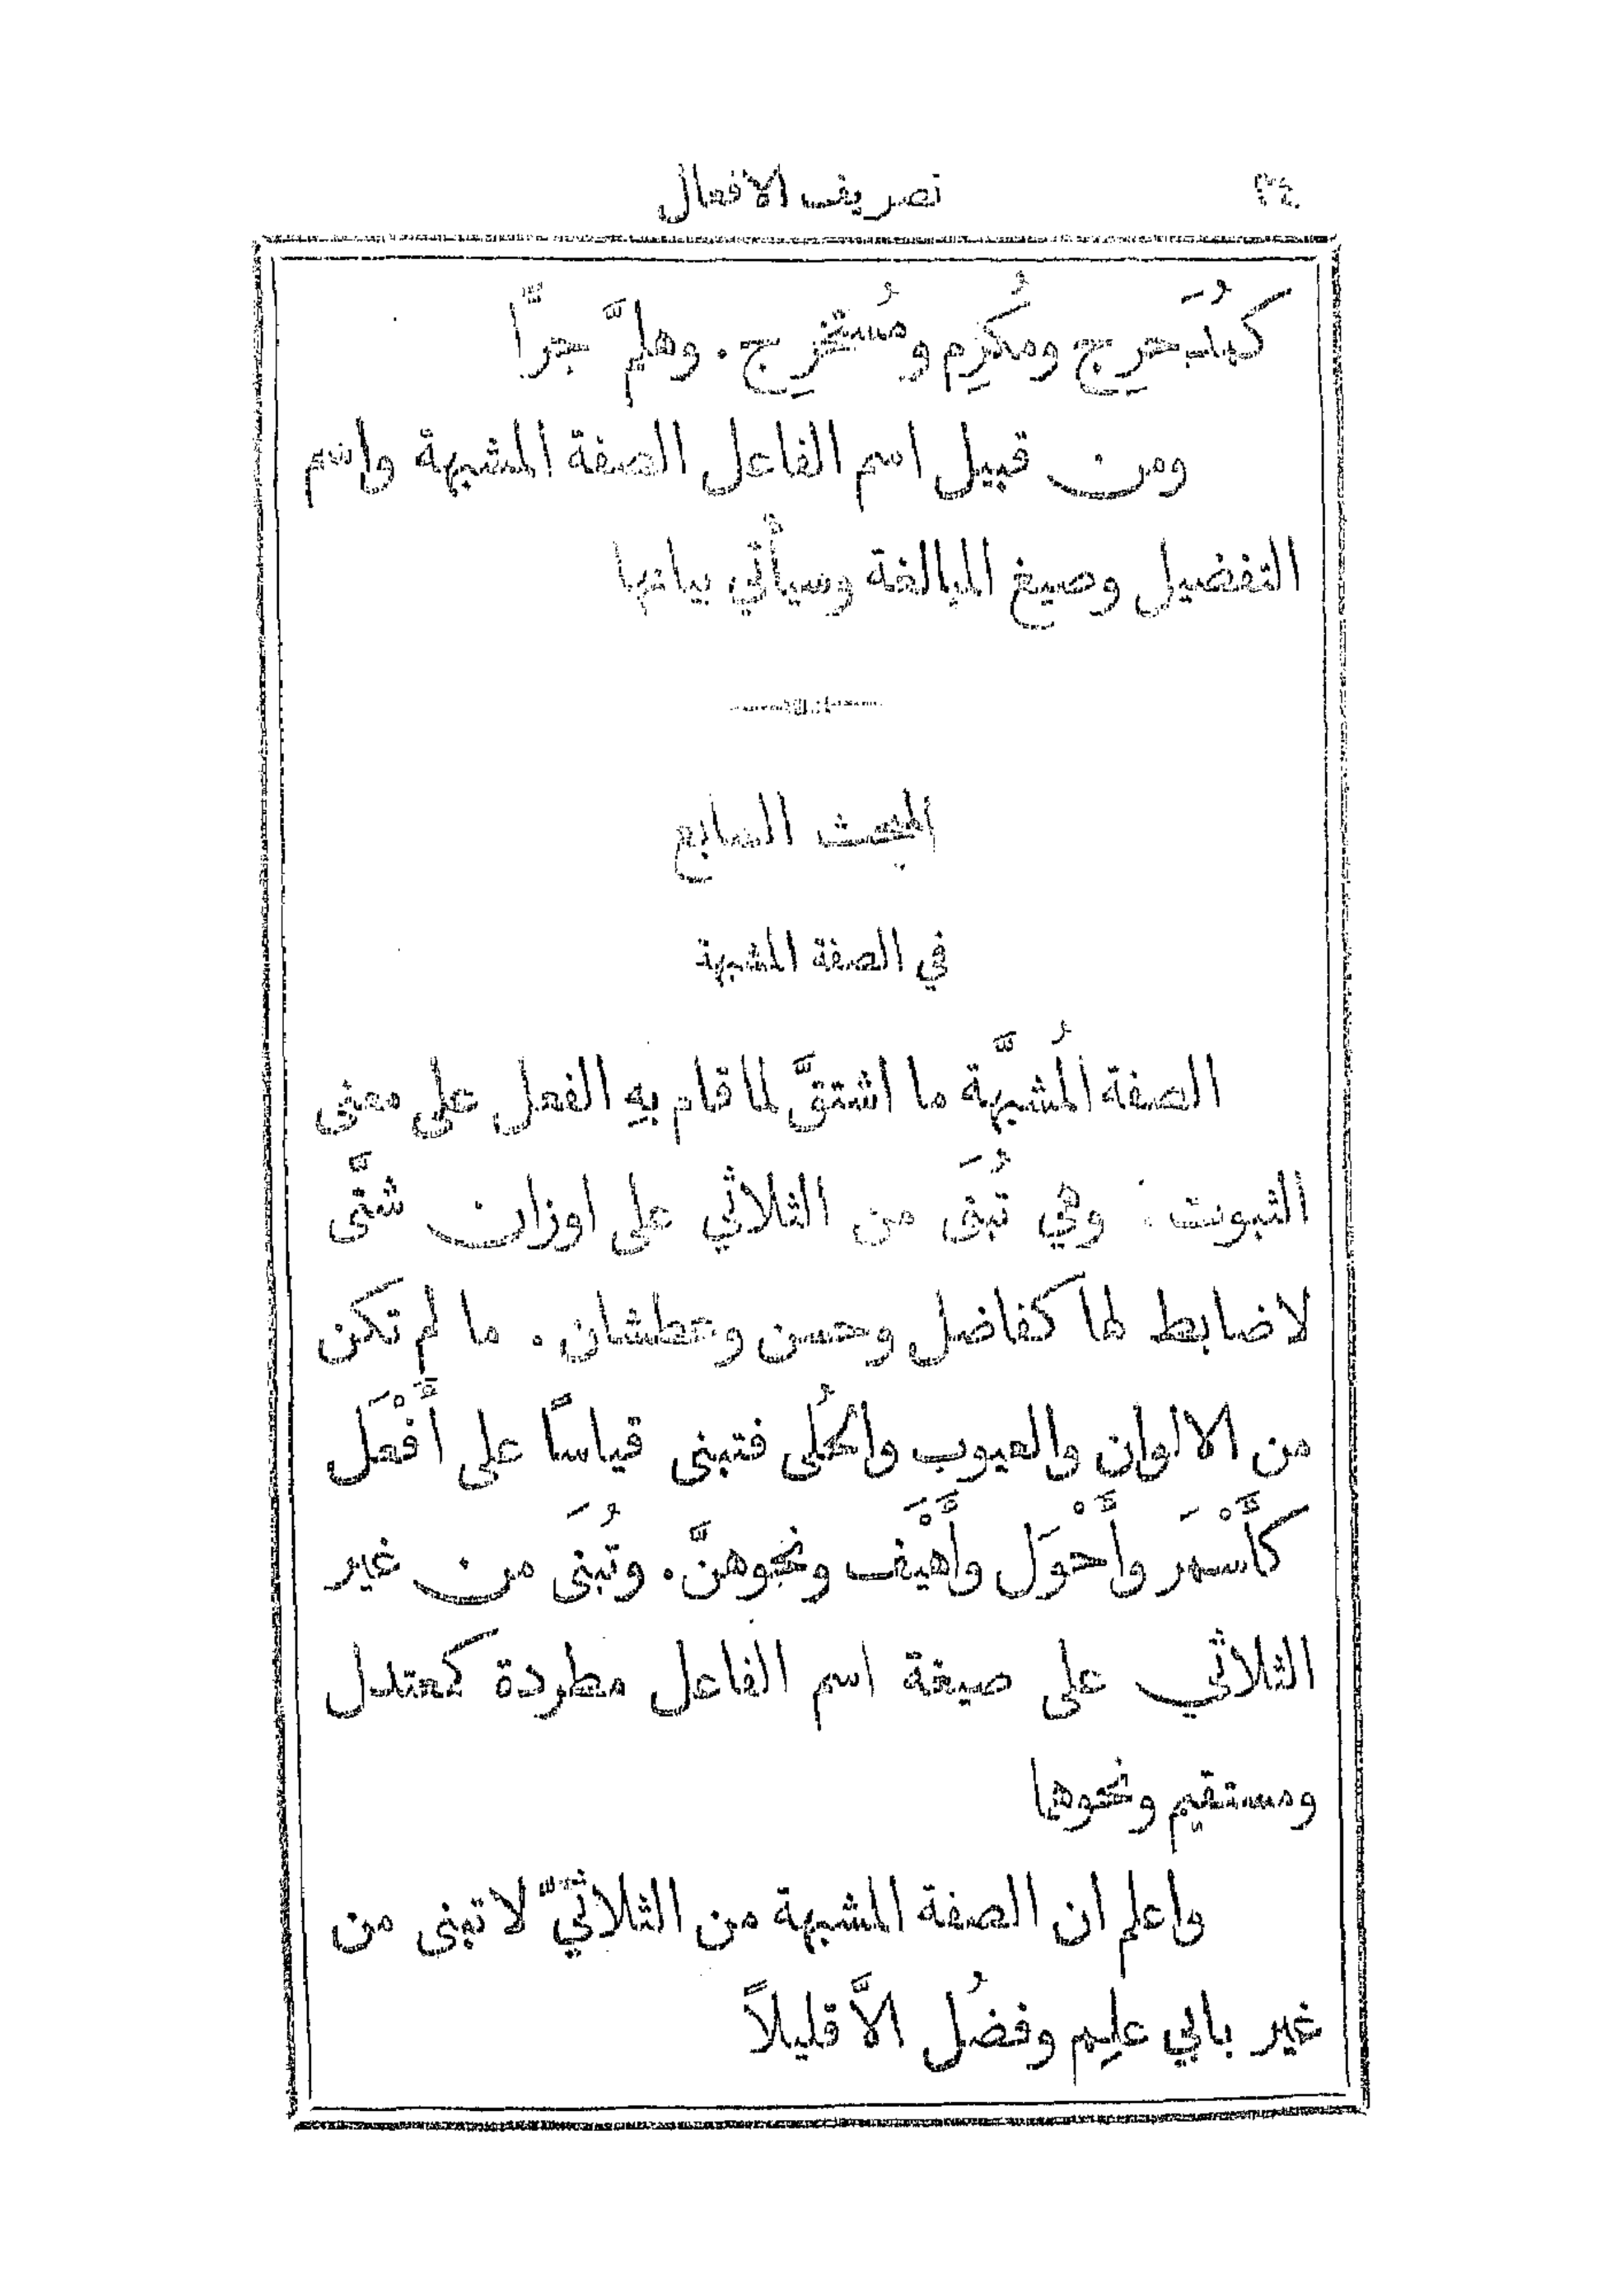 ٣٤ تصريف الافعال
كمُدَحرِج ومُكرِم ومُستخرِج . وهلمَّ جرًّا
ومن قبيل اسم الفاعل الصفة المشبهة واسم
التفضيل وصيغ المبالغة وسيأتي بيانها
المبحث السابع
في الصفة المشبهة
الصفة المُشبَّهة ما اشتقَّ لما قام بهِ الفعل على معنى
الثبوت . وهي تُبنَى من الثلاثي على اوزان شتَّى
لا ضابط لها كفاضل وحسن وعطشان . ما لم تكن
من الالوان والعيوب والحُلى فتبنى قياسًا على أَفْعَل
كأَسْمَر وأَحْوَل وأَهْيَف ونحوهنَّ . وتُبنَى من غير
الثلاثي على صيغة اسم الفاعل مطردة كمعتدل
ومستقيم ونحوهما
واعلم ان الصفة المشبهة من الثلاثيّ لا تبنى من
غير بابي علِم وفضُل الاَّ قليلاً